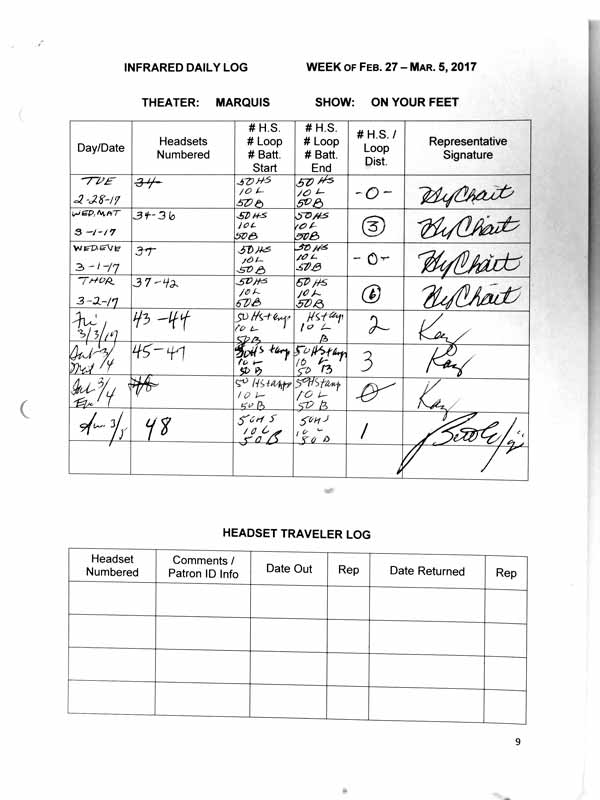 INFRARED DAILY LOG WEEK OF FEB. 27 – MAR. 5, 2017
THEATER: MARQUIS SHOW: ON YOUR FEET
Day/Date
Headsets
Numbered
# H.S.
# Loop
# Batt.
Start
# H.S.
# Loop
# Batt.
End
# H.S. /
Loop
Dist.
Representative
Signature
TUE
2-28-17
34
50 HS
10 L
50B
50 HS
10 L
50B
-0-
WED. MAT
3-1-17
34-36
50HS
10L
50B
50HS
10L
50B
3
WED. EVE
3-1-17
37
50HS
10L
50B
50HS
10L
50B
-0-
THUR
3-2-17
37-42
50HS
10L
50B
50 HS
10L
50B
6
Fri
3/3/17
43-44
50 HS
10 L
50B
HS
10 L
B
2
Kay
Sat 3/4
Mat
45-47
50HS
10 L
50 B
50HS
10 L
50 B
3
Kay
Sat 3/4
Eve
48
50 HS
10 L
50B
50HS
10 L
50B
0
Kay
Sun 3/5
48
50HS
10 L
50B
50HS
10 L
50B
1
HEADSET TRAVELER LOG
Headset
Numbered
Comments /
Patron ID Info
Date Out
Rep
Date Returned
Rep
9